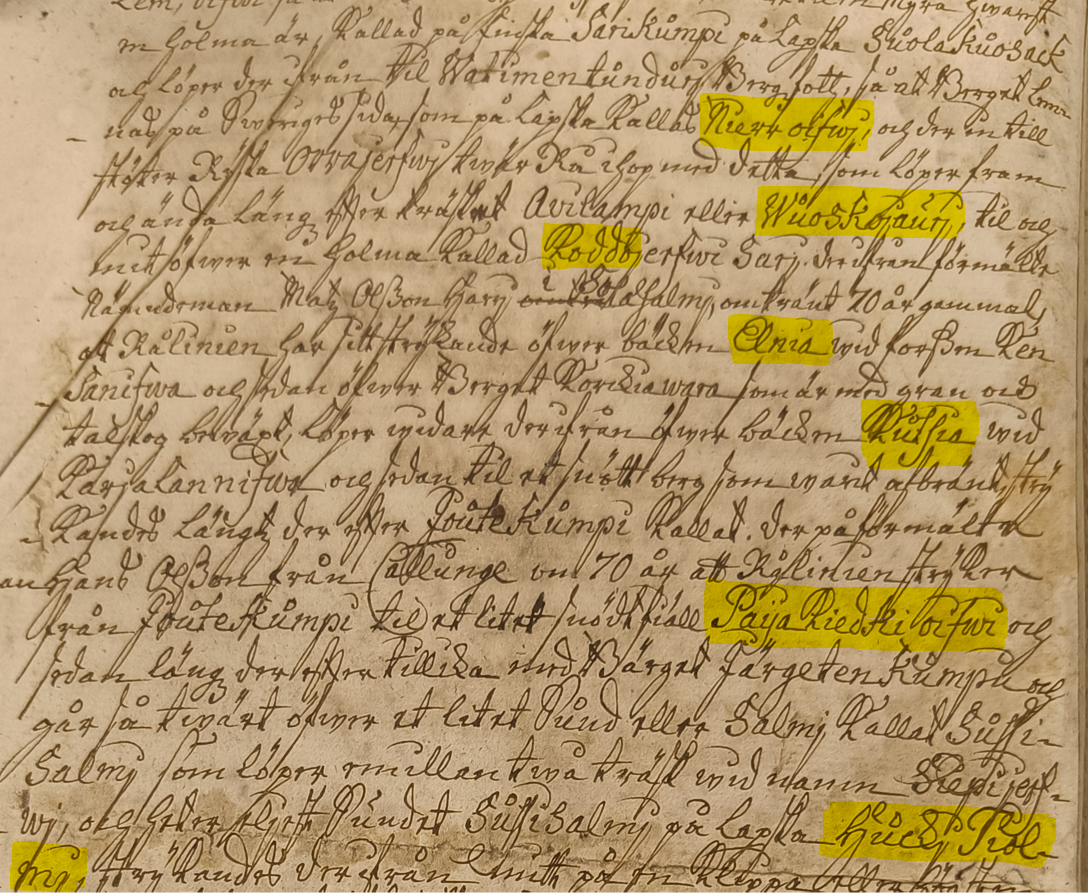 en holma är, Kallad på finska Sarikumpi på Lapska Suolakuosack
och löper der ifrån til Watimentundurj Berg fott, så at Berget lem-
nas på Sweriges sida, som på Lapska Kallas Nierr oifwj, och der in till
stöter Ryska Orrajerfwi twär Rå ihop med detta, som löper fram
och ända läng efter träsket Avilampi eller Wuoskojaurj, til och
mit öfwer en holma Kallad Roddbjerfwi Sarj. der ifrån förmälte
Nämndeman Matz Olßon Harj i Salmj, omtränt 70 år gammal,
at Rålinien har sitt strykande öfwer bäcken Ania wid forßen Ken
Sanifwa och sedan öfwer Berget Korckiawara som är med gran och
talskog bewäxt, löper widare der ifrån öfwer bäcken Kutsia wid
Karjalanniſwa och sedan til et snött berg som warit afbränt, stry
Kandes längt der efter Joutekumpi Kallat. Der på förmälte
Hans Olßon från Callunge om 70 år att Rålinien stryker
från Joutekumpi til et litet snödt fiäll Paija Kiedski oifwi och
sedan läng der efter tillika med Bärget Järgetenkumpu och
går så twärt öfwer et litet Sund eller Salmj Kallat Sussi-
Salmj som löper emillan twå träsk wid namn Siepijerf-
wj, och heter eljest Sundet Sussisalmj på Lapska Hucks Tiol-
mj, strykandes der ifrån mitt på en Klippa eller